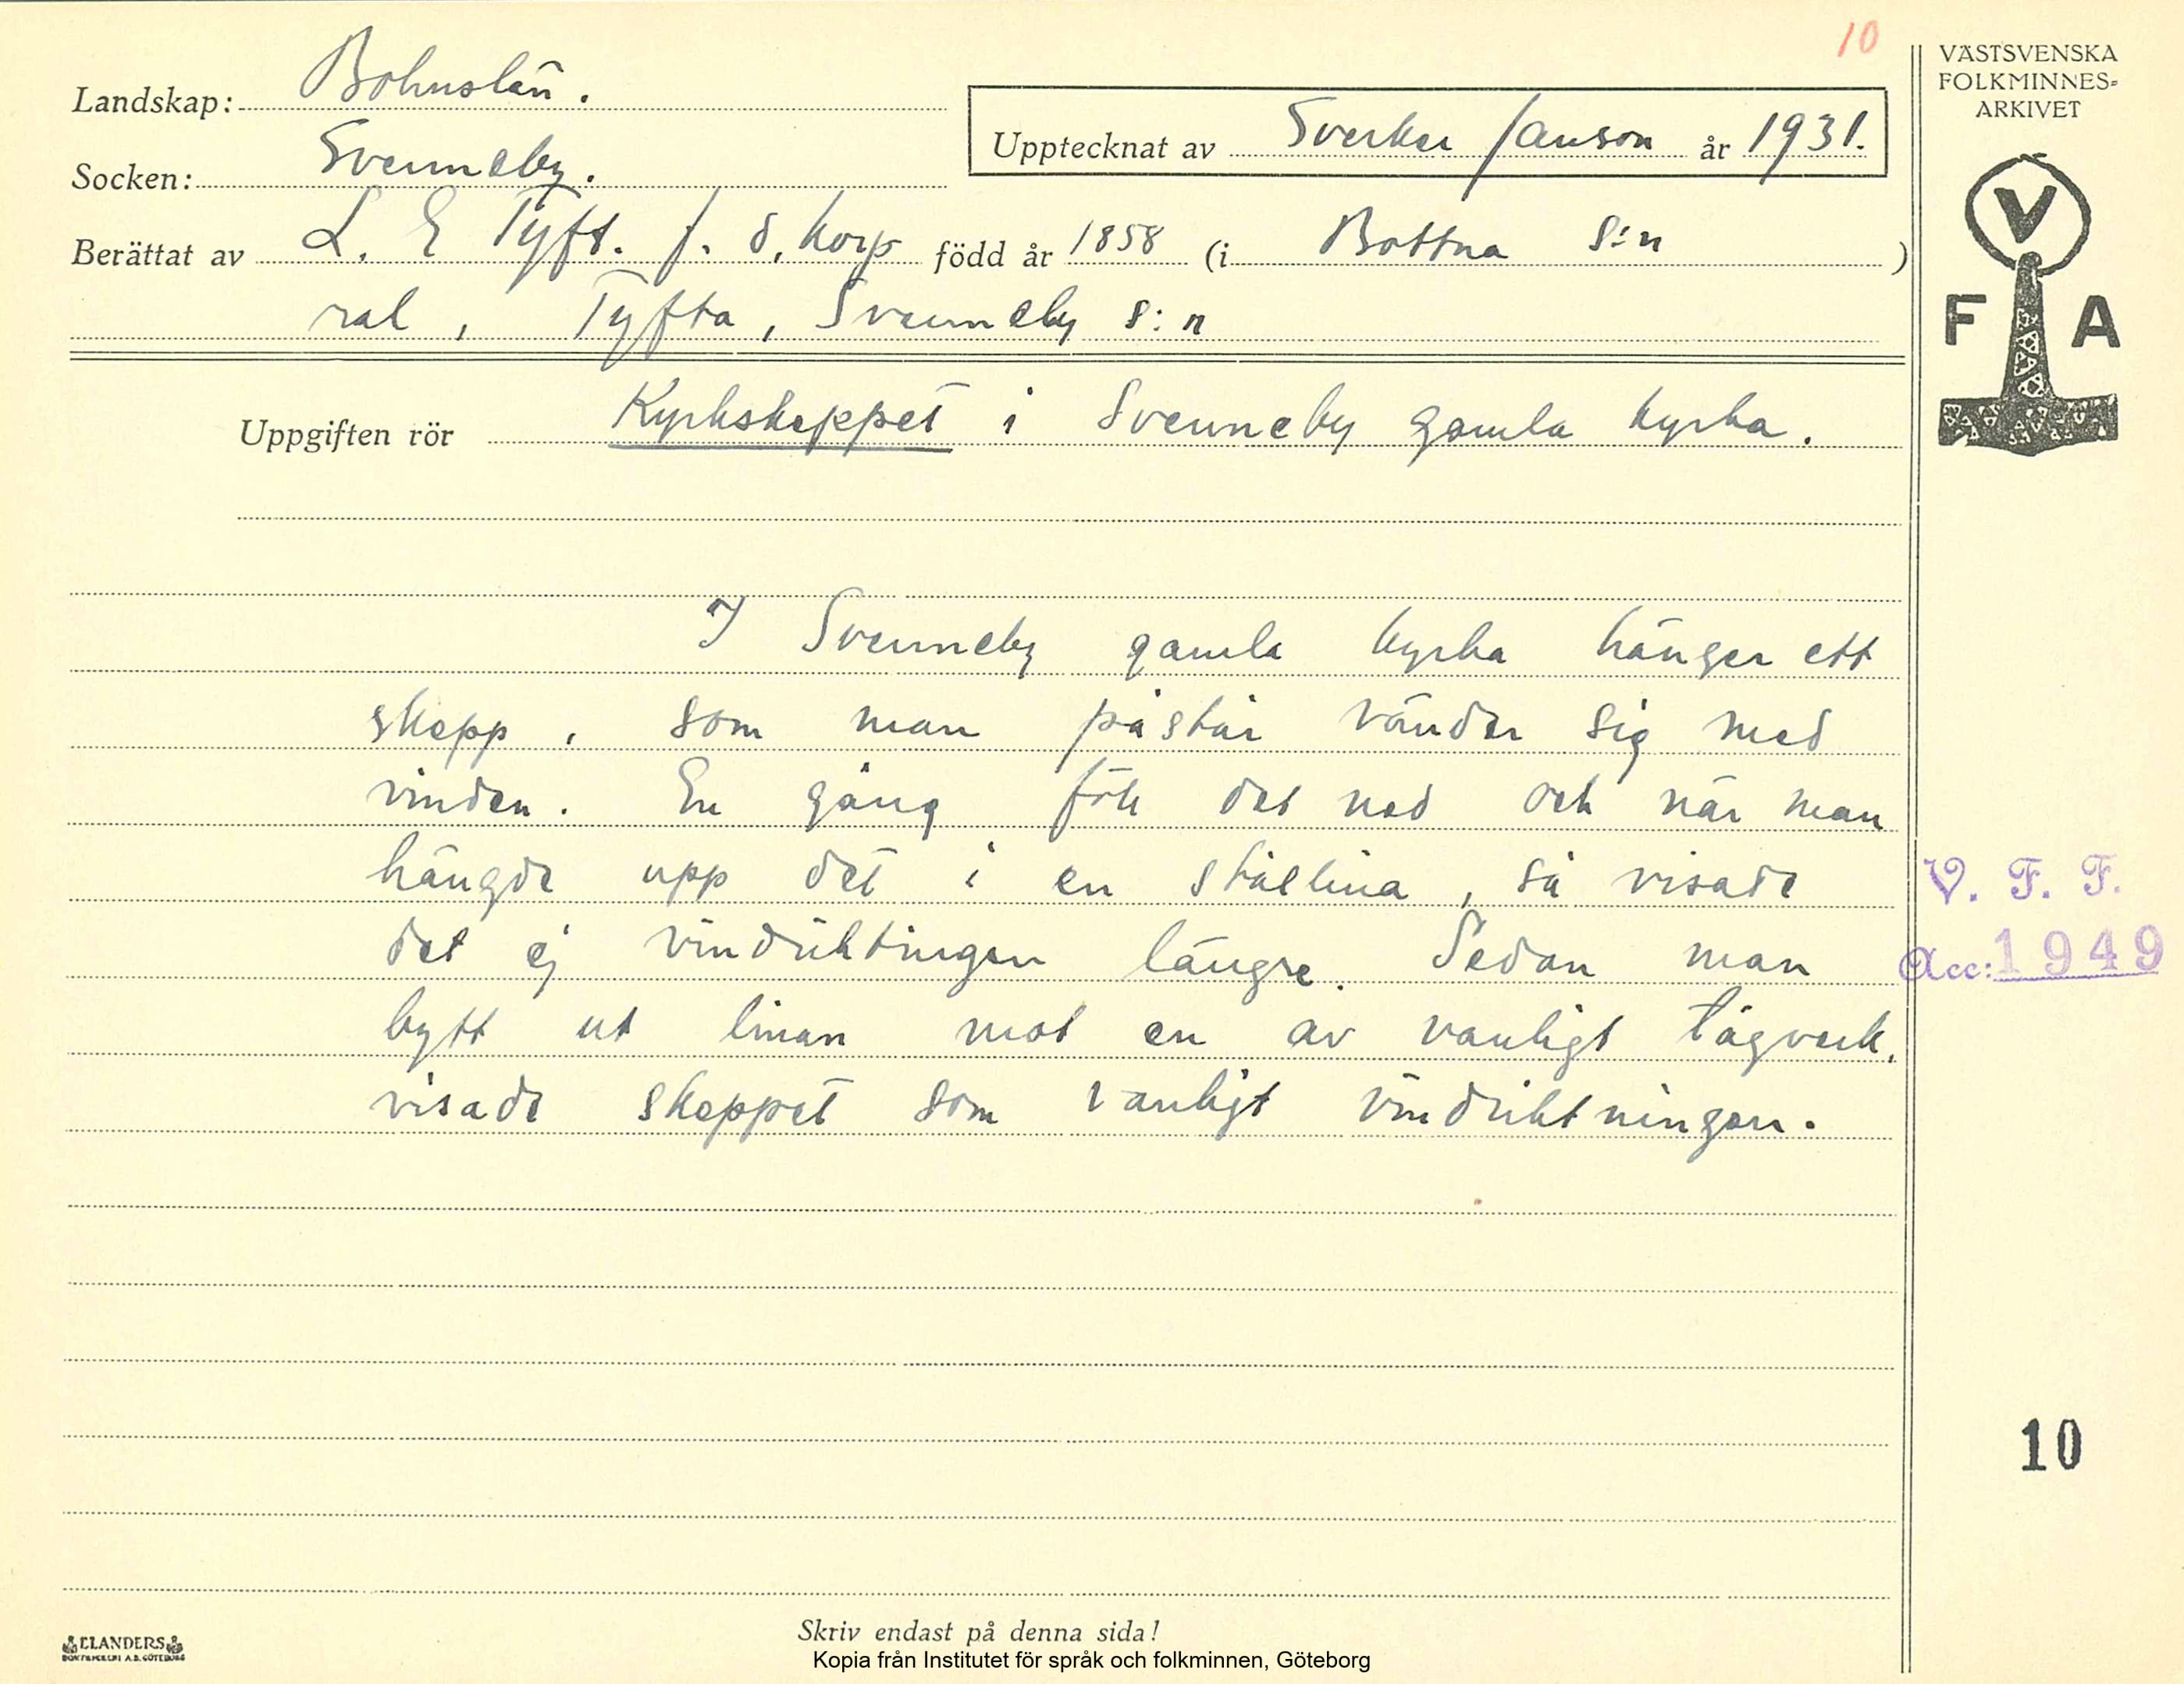 10
VÄSTSVENSKA
FOLKMINNES-
ARKIVET
Landskap: Bohuslän.
Upptecknat av Sverker Janson år 1931.
Socken: Svenneby.
Berättat av L. E Tyft. f. d. korp född år 1858 (i Bottna s:n )
ral, Tyfta, Svenneby s:n
V
F A
Uppgiften rör Kyrkskeppet i Svenneby gamla kyrka.
I Svenneby gamla kyrka hänger ett
skepp, som man påstår vänder sig med
vinden. En gång föll det ned och när man
hängde upp det i en stållina, så visade
det ej vindriktingen längre. Sedan man
bytt ut linan mot en av vanligt tågverk,
visade skeppet som vanligt vindriktningen.
V. F. F.
Acc: 1949
10
Skriv endast på denna sida!
ELANDERS
BOKTRYCKERI A.B. GÖTEBORG
Kopia från Institutet för språk och folkminnen, Göteborg